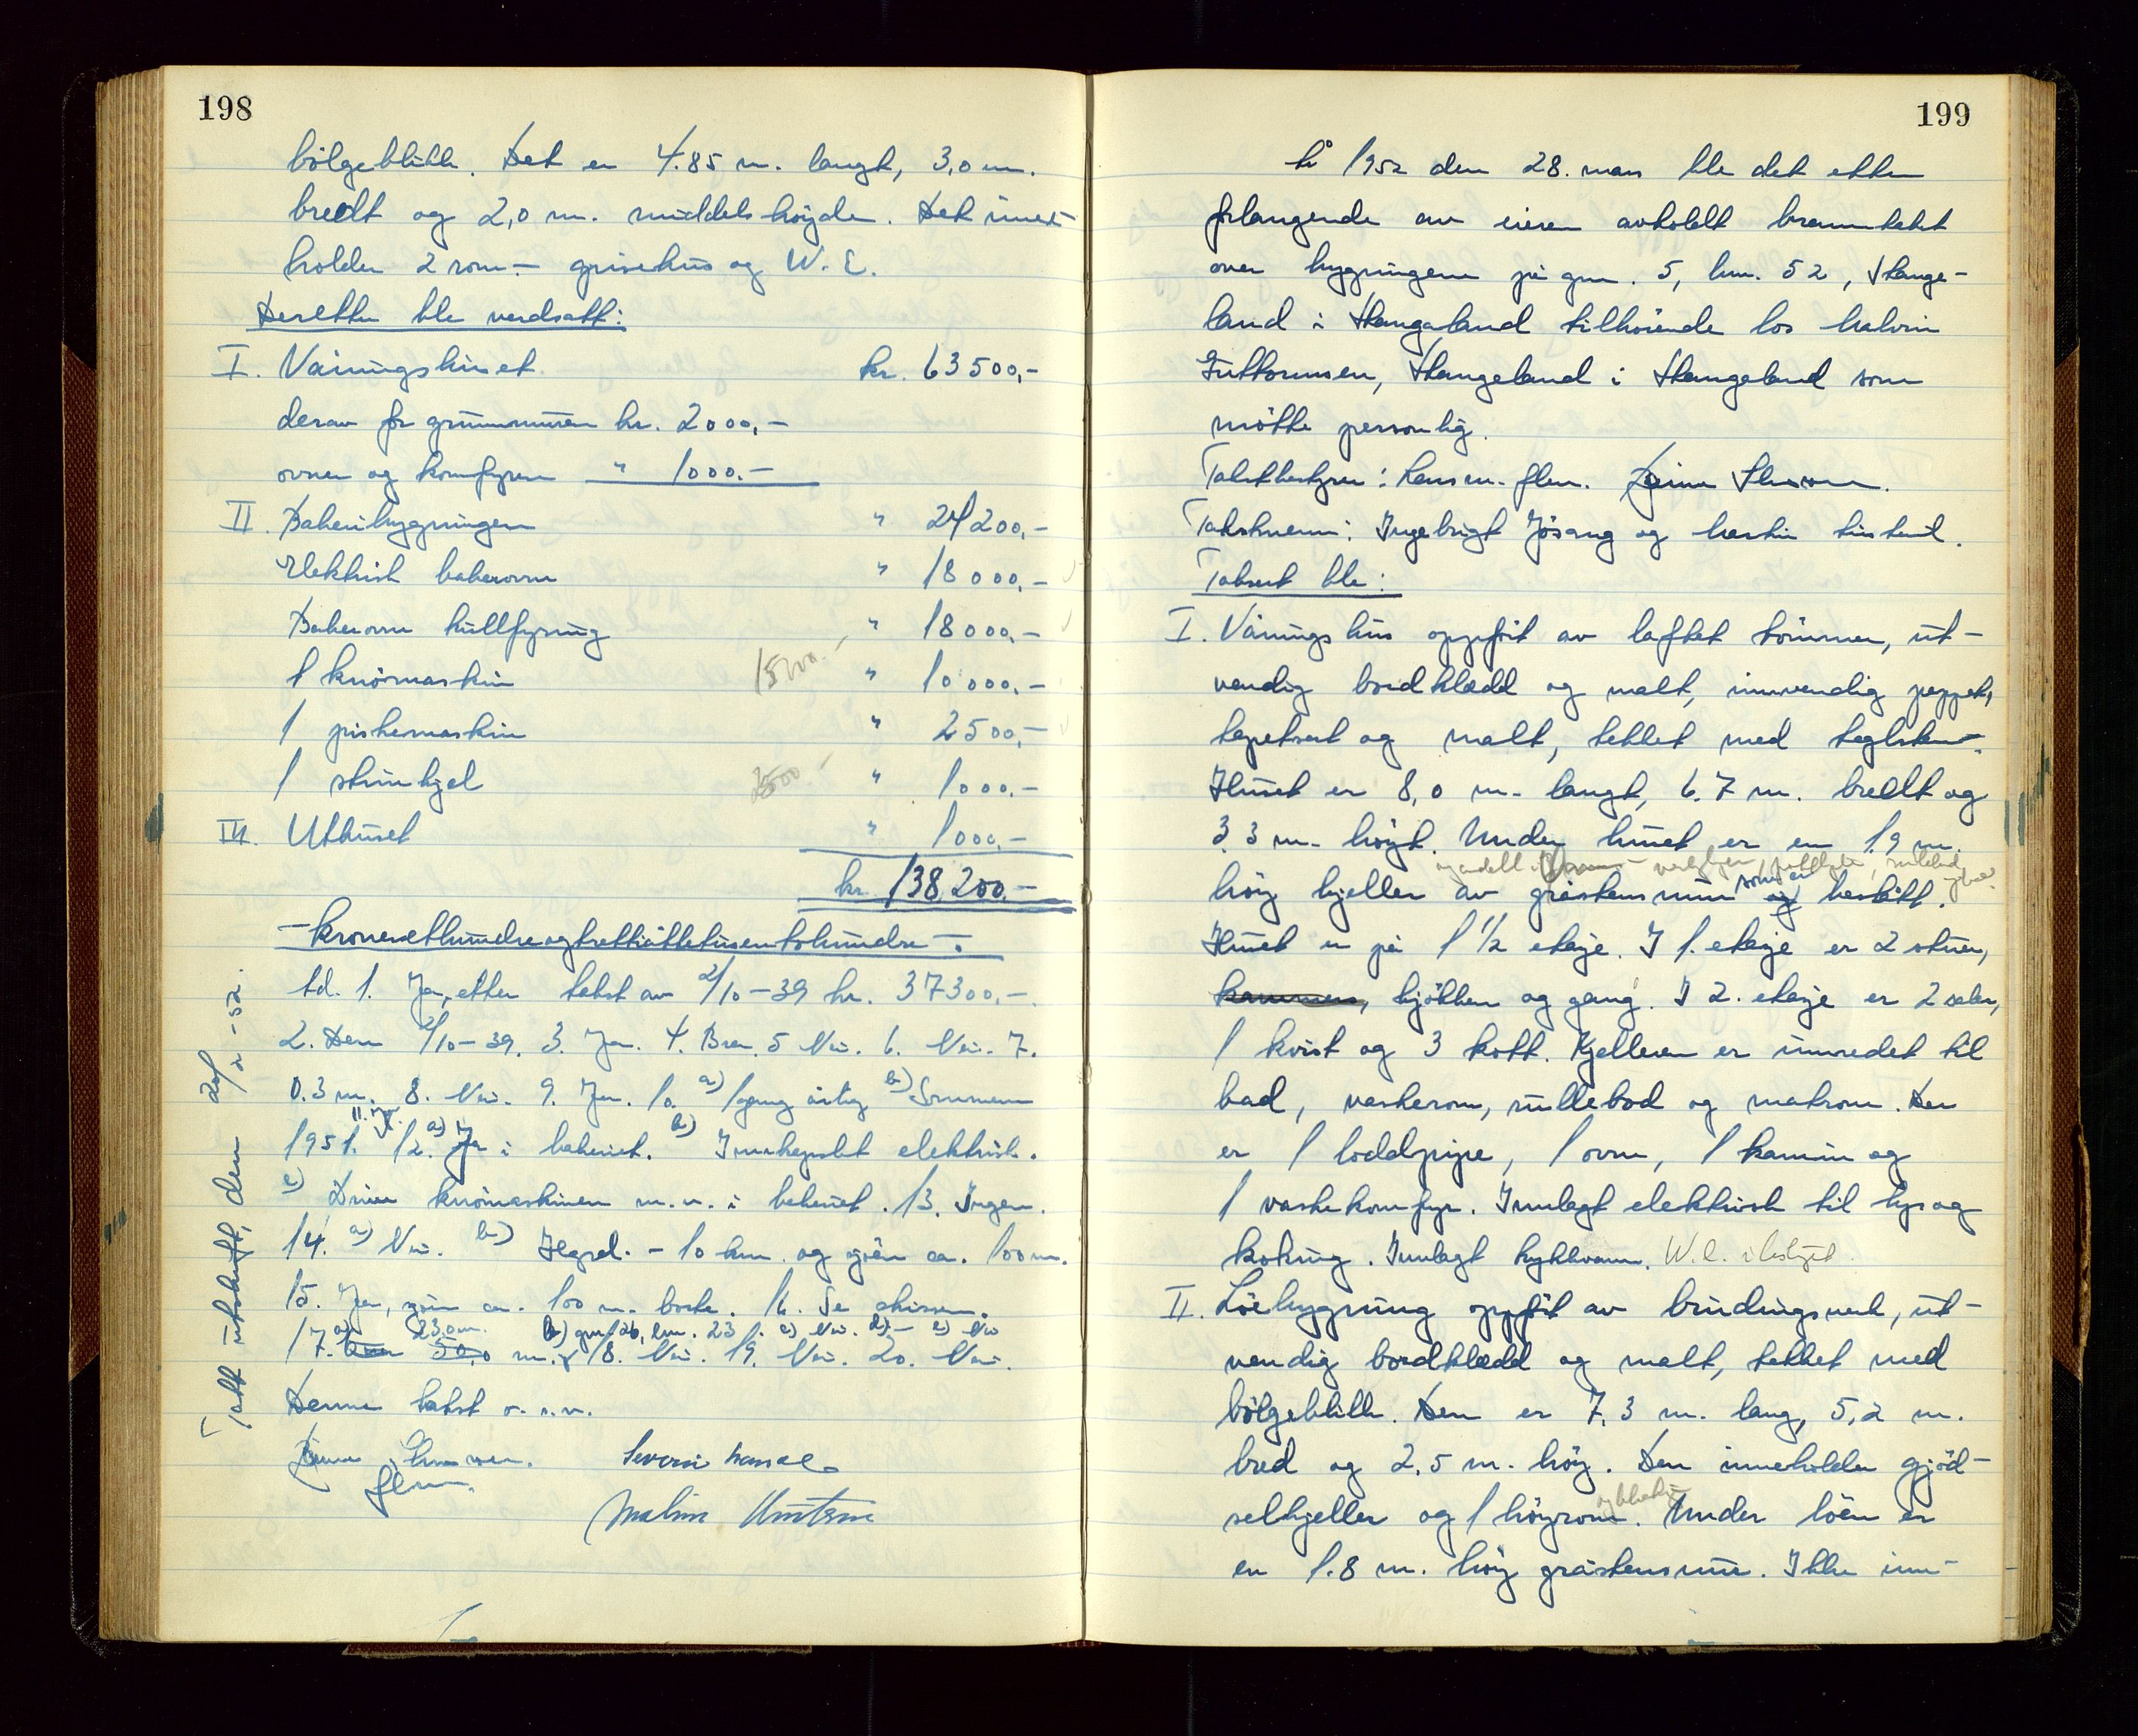 198
bölgeblikk. Det er 4.85 m. langt, 3,0 m.
bredt og 2,0 m. middels höyde. Det inne-
holder 2 rom - grisehus og W. C.
Deretter ble verdsatt:
I. Våningshuset kr. 63500,-
derav for grunnmuren kr. 2000,-
ovner og komfyren " 1000.-
II. Bakeribygningen " 24200,-
Elektrisk bakerovn " 18000,-
Bakerovn kullfyring " 18000,-
1 knömaskin 1500.- " 10000,-
1 piskemaskin " 2500,-
1 " 1000.-
III. Uthuset " 1000,-
kr. 138,200.-
- Kroneretthundreogtrettiåttetusentohundre -.
td. 1. Ja, etter takst av 2/10-39 kr. 37300,-.
2. Den 2/10-39. 3. Ja. 4. Bra. 5 Nei. 6. Nei. 7.
0.3 m. 8. Nei. 9. Ja. 10. a) 1 gang årlig b) Sommeren
1951. 11. Ja. 12. a) Ja i bakeriet. b) Innkapslet elektrisk.
c) Driver knömaskinen m.v. i bakeriet. 13. Ingen.
14. a) Nei. b) - 10 km. og sjöen ca. 100 m.
15. Ja, sjöen ca. 100 m. borte. 16. Se skissen.
17. a) 23.0 m. b) gnr. 126, bnr. 231. c) Nei. d) - e) Nei
50,0 m. 18. Nei. 19. Nei. 20. Nei.
Denne takst o. s. v.
flm.
Tatt utskrift, den
199
År 1952 den 28. mars ble det etter
forlangende av eieren avholdt branntakst
over bygningene på gnr. 5, bnr. 52, Stange-
land i Stangaland tilhörende
Guttormsen, Stangeland i Stangeland som
mötte personlig.
Takstbestyrer: Lensm. flm.
Takstmenn: Ingebrigt Jösang og
Taksert ble:
I. Våningshus oppfört av laftet tömmer, ut-
vendig bordkledd og malt, innvendig pappet,
tapetsert og malt, tekket med teglsten.
Huset er 8,0 m. langt, 6.7 m. bredt og
3.3 m. höyt. Under huset er en 1.9 m.
höy kjeller av gråstensmur som er og
Huset er på 1 1/2 etasje. I 1. etasje er 2 stuer,
kammers, kjökken og gang. I 2. etasje er 2 saler,
1 kvist og 3 kott. Kjelleren er innredet til
bad, vaskerom, rullebod og matrom. Der
er 1 loddpipe, 1 ovn, 1 kamin og
1 vaskekomfyr. Innlagt elektrisk til lys og
koking. Innlagt trykkvann. W.C.
II. Löebygning oppfört av bindingsverk, ut-
vendig bordkledd og malt, tekket med
bölgeblikk. Den er 7,3 m. lang, 5,2 m.
bred og 2,5 m. höy. Den inneholder gjöd-
selkjeller og 1 höyrom. Under löen er
en 1.8 m. höy gråstensmur. Ikke inn-